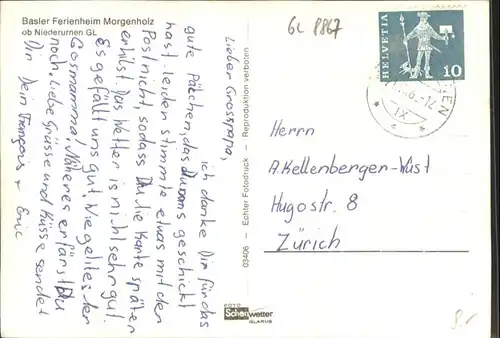 Basler Ferienheim Morgenholz
ob Niederurnen GL
GL 8867
HELVETIA
10
IX
Lieber Grosspapa,
ich danke Dir für das
gute Päckchen, das Du uns geschickt
hast. Leider stimmte etwas mit der
Post nicht, sodass Du die Karte später
erhilst. Das Wetter ist nicht sehr gut.
Es gefällt uns gut. Wie geht es der
Grosmamma? Näheres erfärst Du
noch. Liebe Grüsse und Küsse sendet
Dir Dein François + Eric
Herrn
A. Kellenberger-Wüst
Hugostr. 8
Zürich
03406 - Echter Fotodruck - Reproduktion verboten
FOTO
Schönwetter
GLARUS